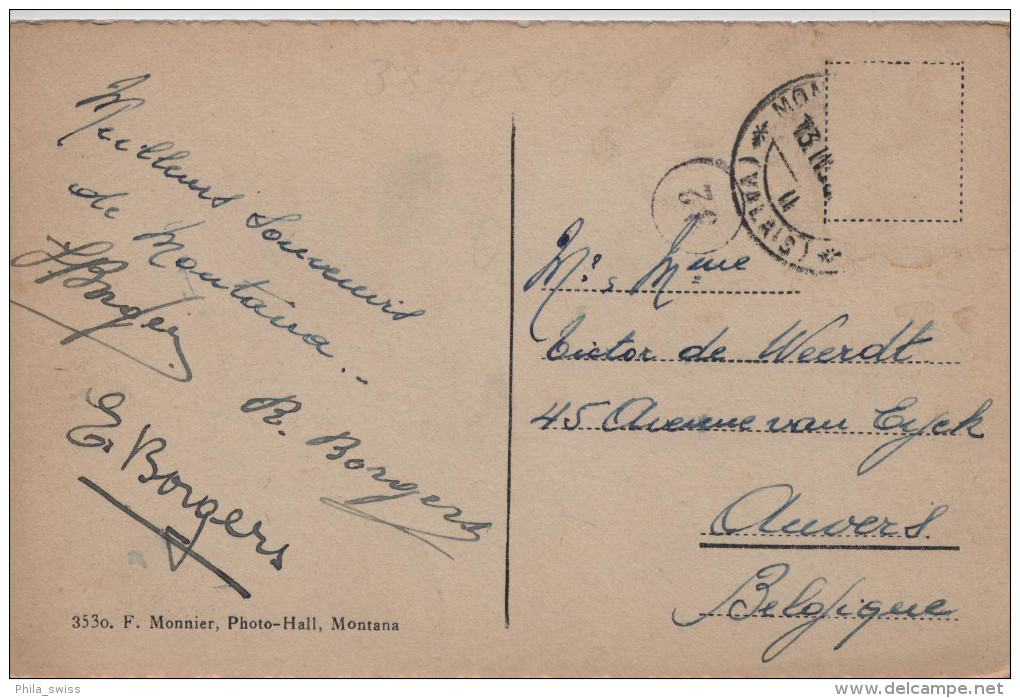 Meilleurs Souvenirs
de Montana..
R. Borgers
E. Borgers
353o. F. Monnier, Photo-Hall, Montana
32
(VALAIS)
Mr & Mme
Victor de Weerdt
45 Avenue van Eyck
Anvers.
Belgique
Phila_swiss
delcampe.net